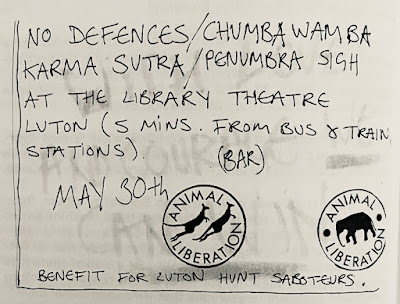 NO DEFENCES/CHUMBA WAMBA
KARMA SUTRA/PENUMBRA SIGH
AT THE LIBRARY THEATRE
LUTON (5 MINS. FROM BUS & TRAIN
STATIONS). (BAR)
MAY 30th
ANIMAL LIBERATION
ANIMAL LIBERATION
BENEFIT FOR LUTON HUNT SABOTEURS.